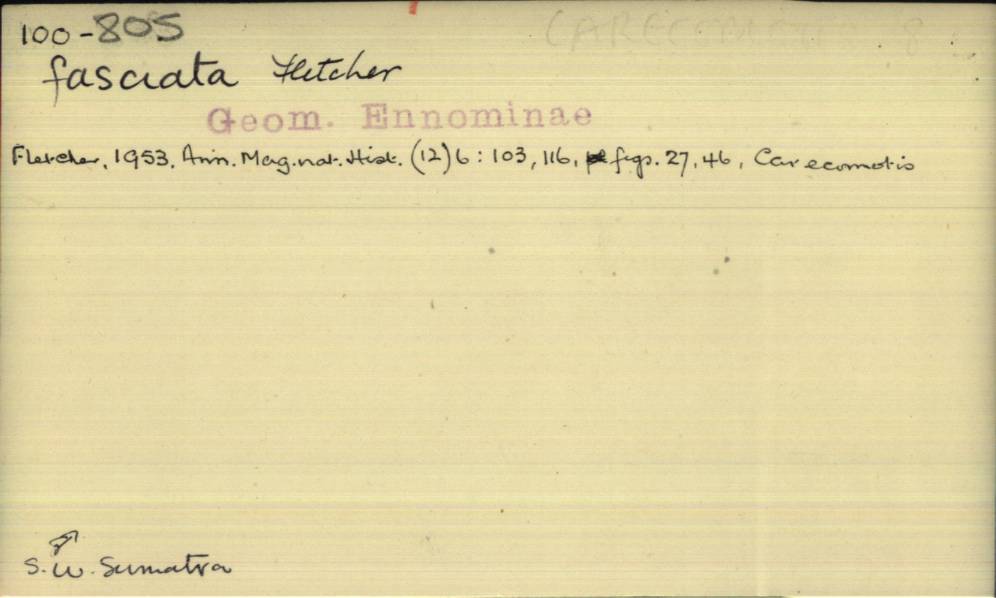 100-805
CARECOMOTIS 8
fasciata Fletcher
Geom. Ennominae
Fletcher, 1953, Ann. Mag. nat. Hist. (12) 6 : 103, 116, figs. 27, 46, Carecomotis
S. W. Sumatra